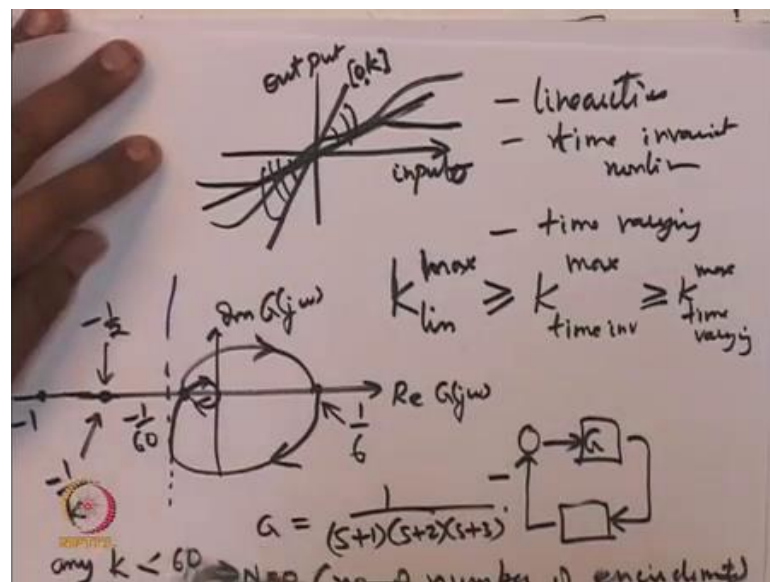 output
[0,k]
input σ
- linearities
- time invariant
nonlin
- time varying
k max lin ≥ k max time inv ≥ k max time varying
Im G(jω)
-1/2
-1
-1/60
Re G(jω)
1/6
-1/k
G
-
G = 1/(s+1)(s+2)(s+3)
NPTEL
any k < 60
N=0 (no of number of encirclements)